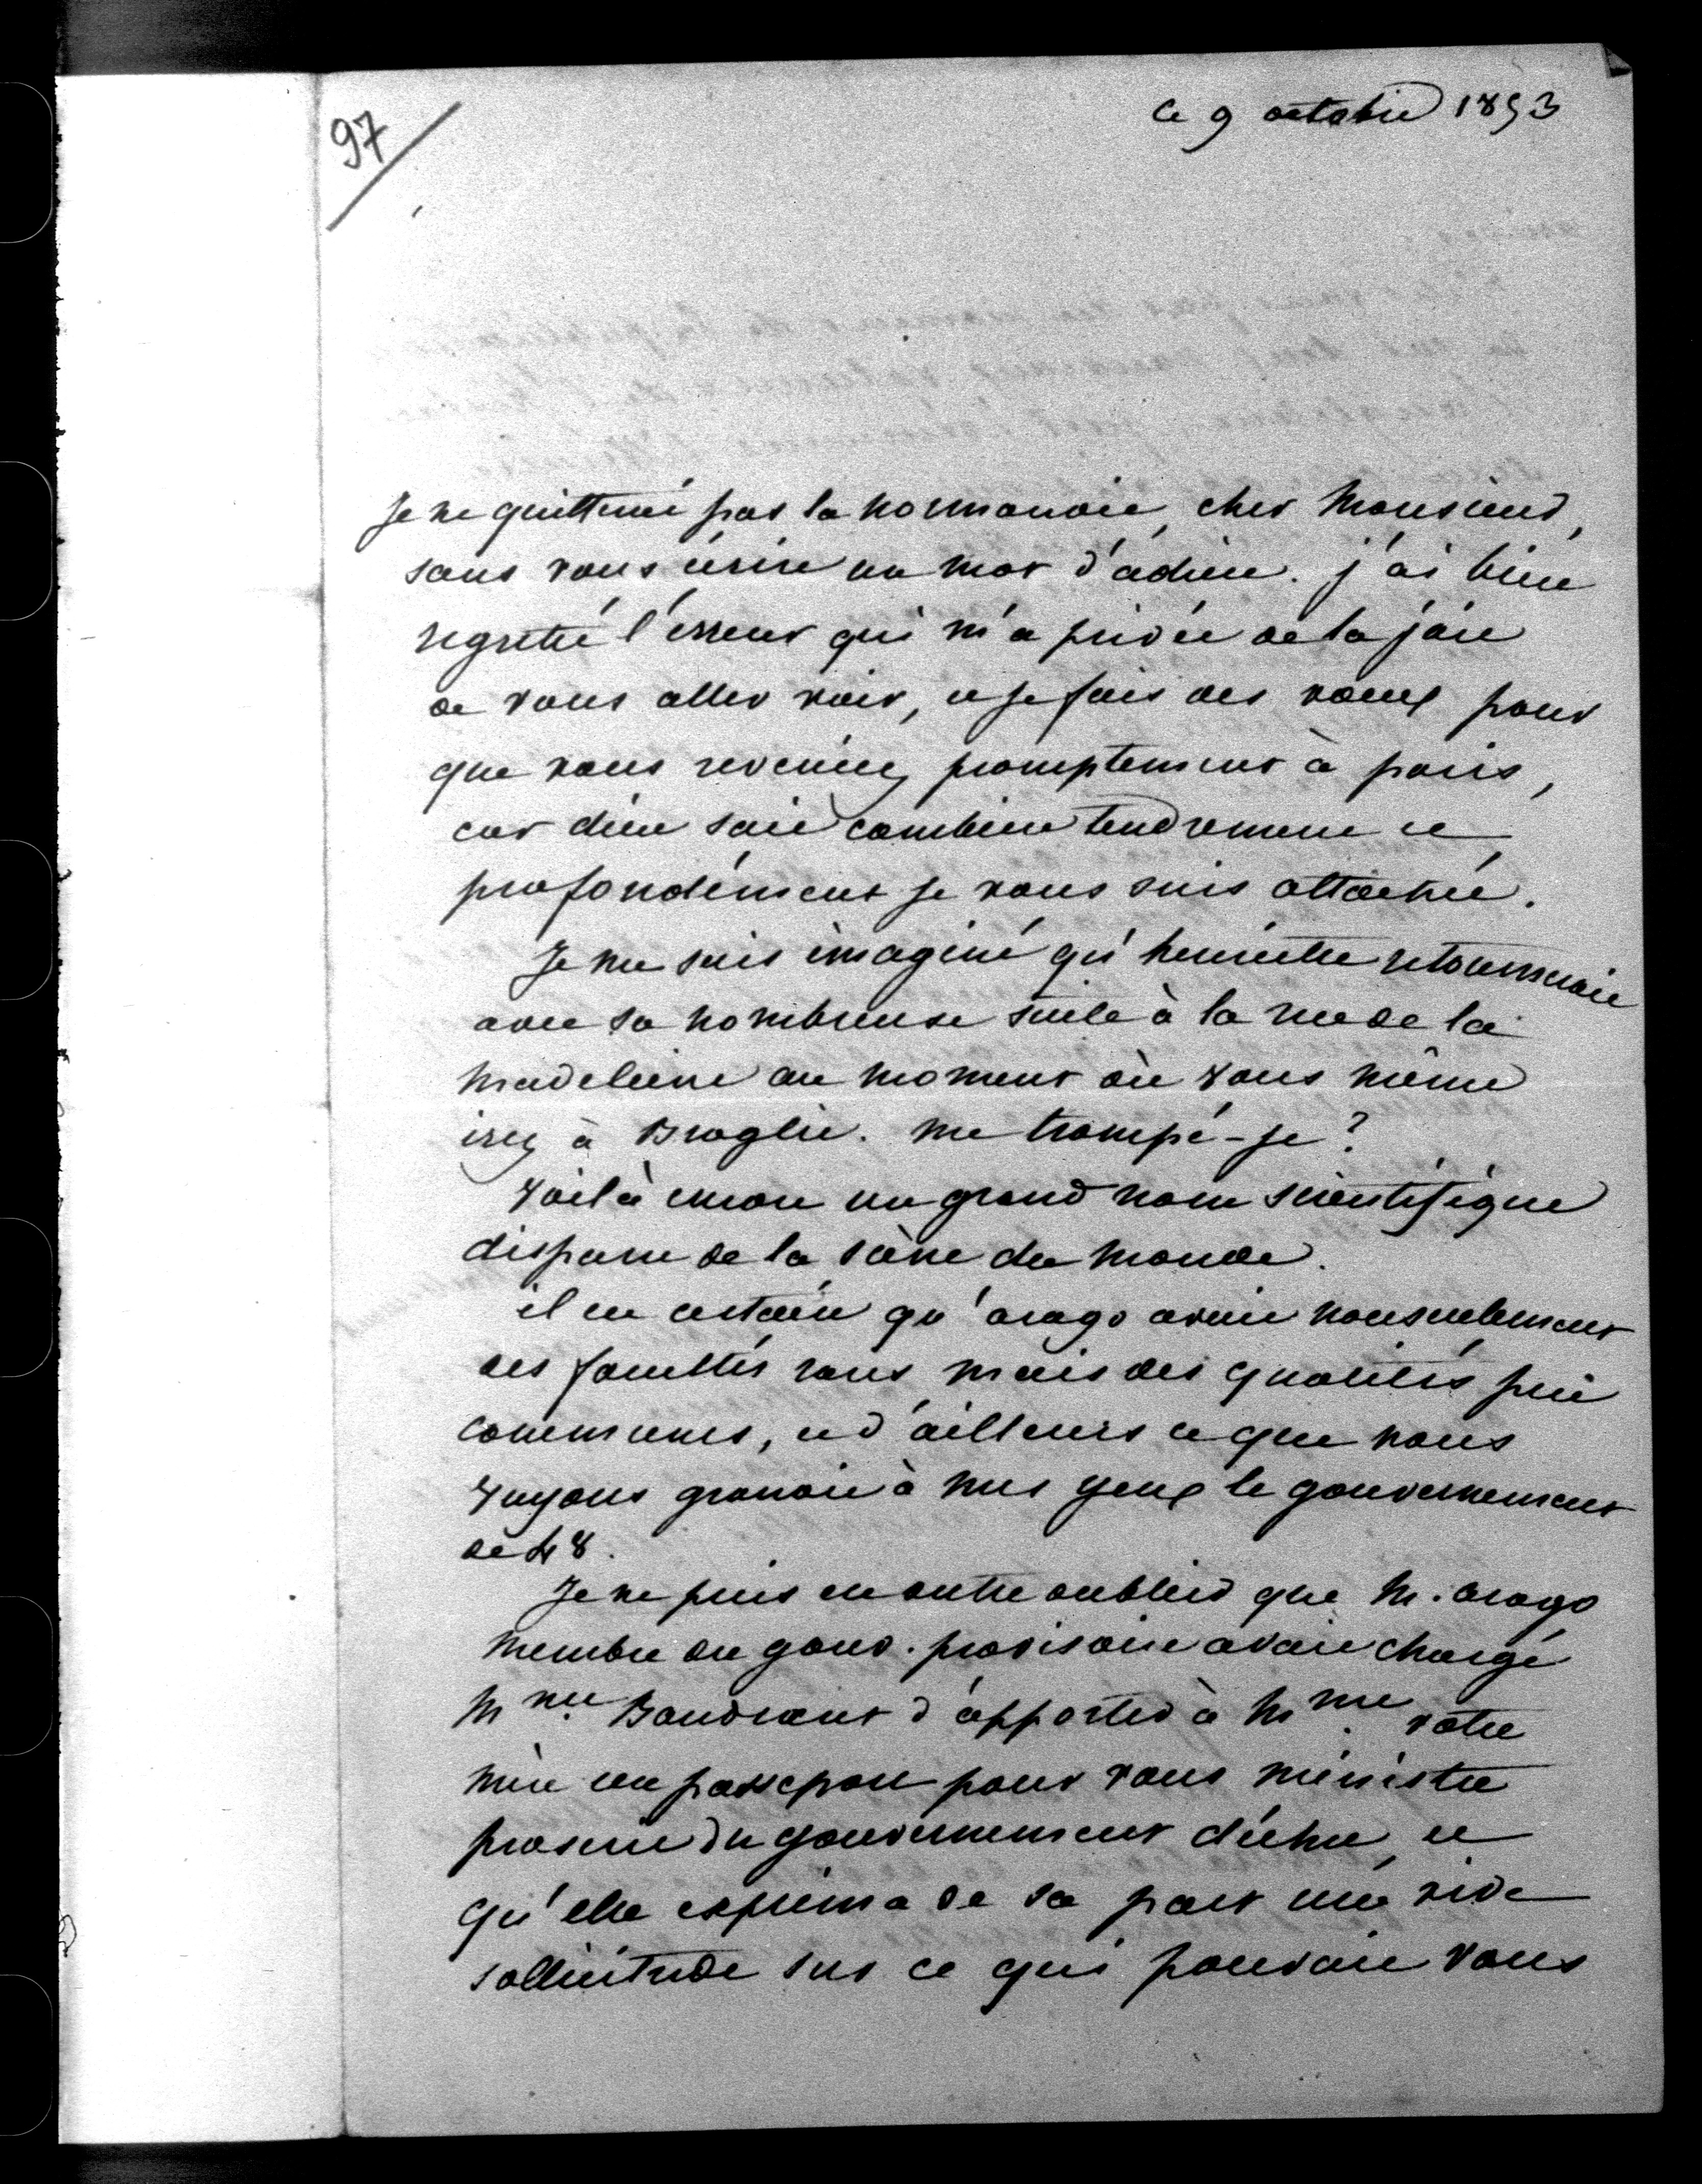 97
Ce 9 octobre 1853
Je ne quitterai pas la normandie, cher Monsieur,
sans vous écrire un mot d'adieu. j'ai bien
regretté l'erreur qui m'a privée de la joie
de vous aller voir, et je fais des voeux pour
que vous reveniez promptement à paris,
car dieu sait combien tendrement et
profondément je vous suis attachée.
Je me suis imaginé qu'henriette retournerait
avec sa nombreuse suite à la rue de la
madeleine au moment où vous même
irez à Broglie. me trompé-je ?
Voilà encore un grand nom scientifique
disparu de la scène du monde.
il est certain qu'arago avait nonseulement
des facultés rares mais des qualités peu
communes, et d'ailleurs ce que nous
voyons grandit à nos yeux le gouvernement
de 48.
Je ne puis en outre oublier que M. arago
membre du gouv. provisoire avait chargé
Mme Baudrant d'apporter à Mme votre
mère un passeport pour vous ministre
proscrit du gouvernement déchu, et
qu'elle exprima de sa part une vive
sollicitude sur ce qui pouvait vous